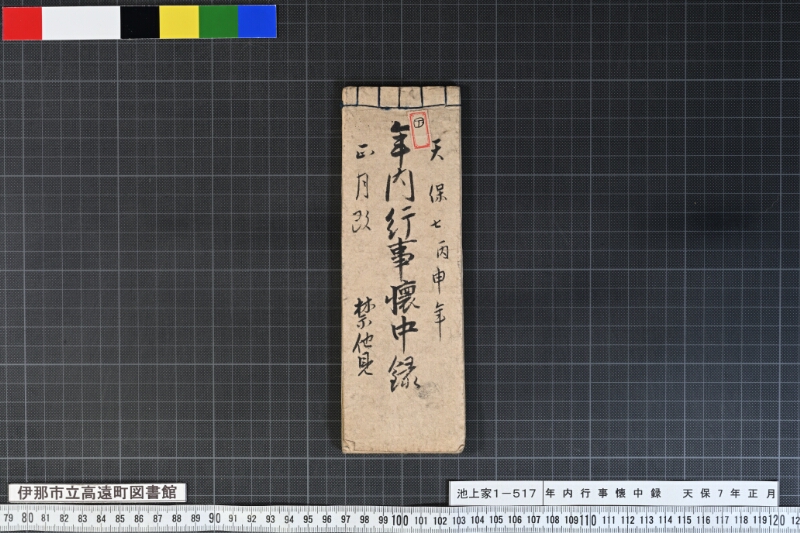 天保七丙申年
年内行事懐中録
正月改
禁他見
伊那市立高遠町図書館
池上家1-517
年内行事懐中録 天保7年正月
79 80 81 82 83 84 85 86 87 88 89 90 91 92 93 94 95 96 97 98 99 100 101 102 103 104 105 106 107 108 109 110 111 112 113 114 115 116 117 118 119 120